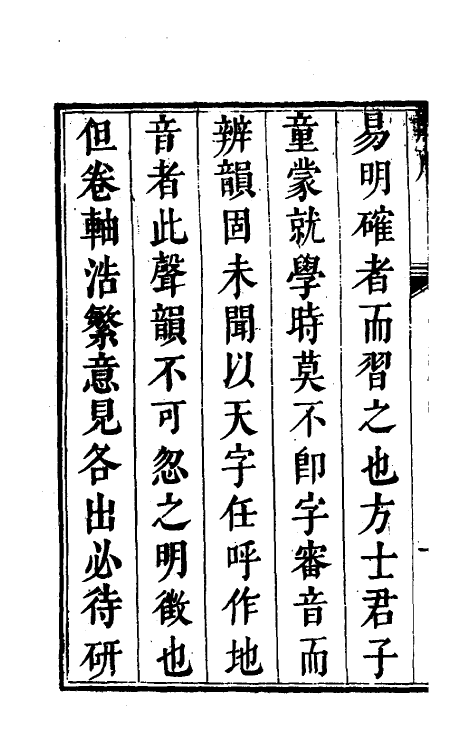 易明確者而習之也方士君子
童蒙就學時莫不卽字審音而
辨韻固未聞以天字任呼作地
音者此聲韻不可忽之明徵也
但卷軸浩繁意見各出必待研